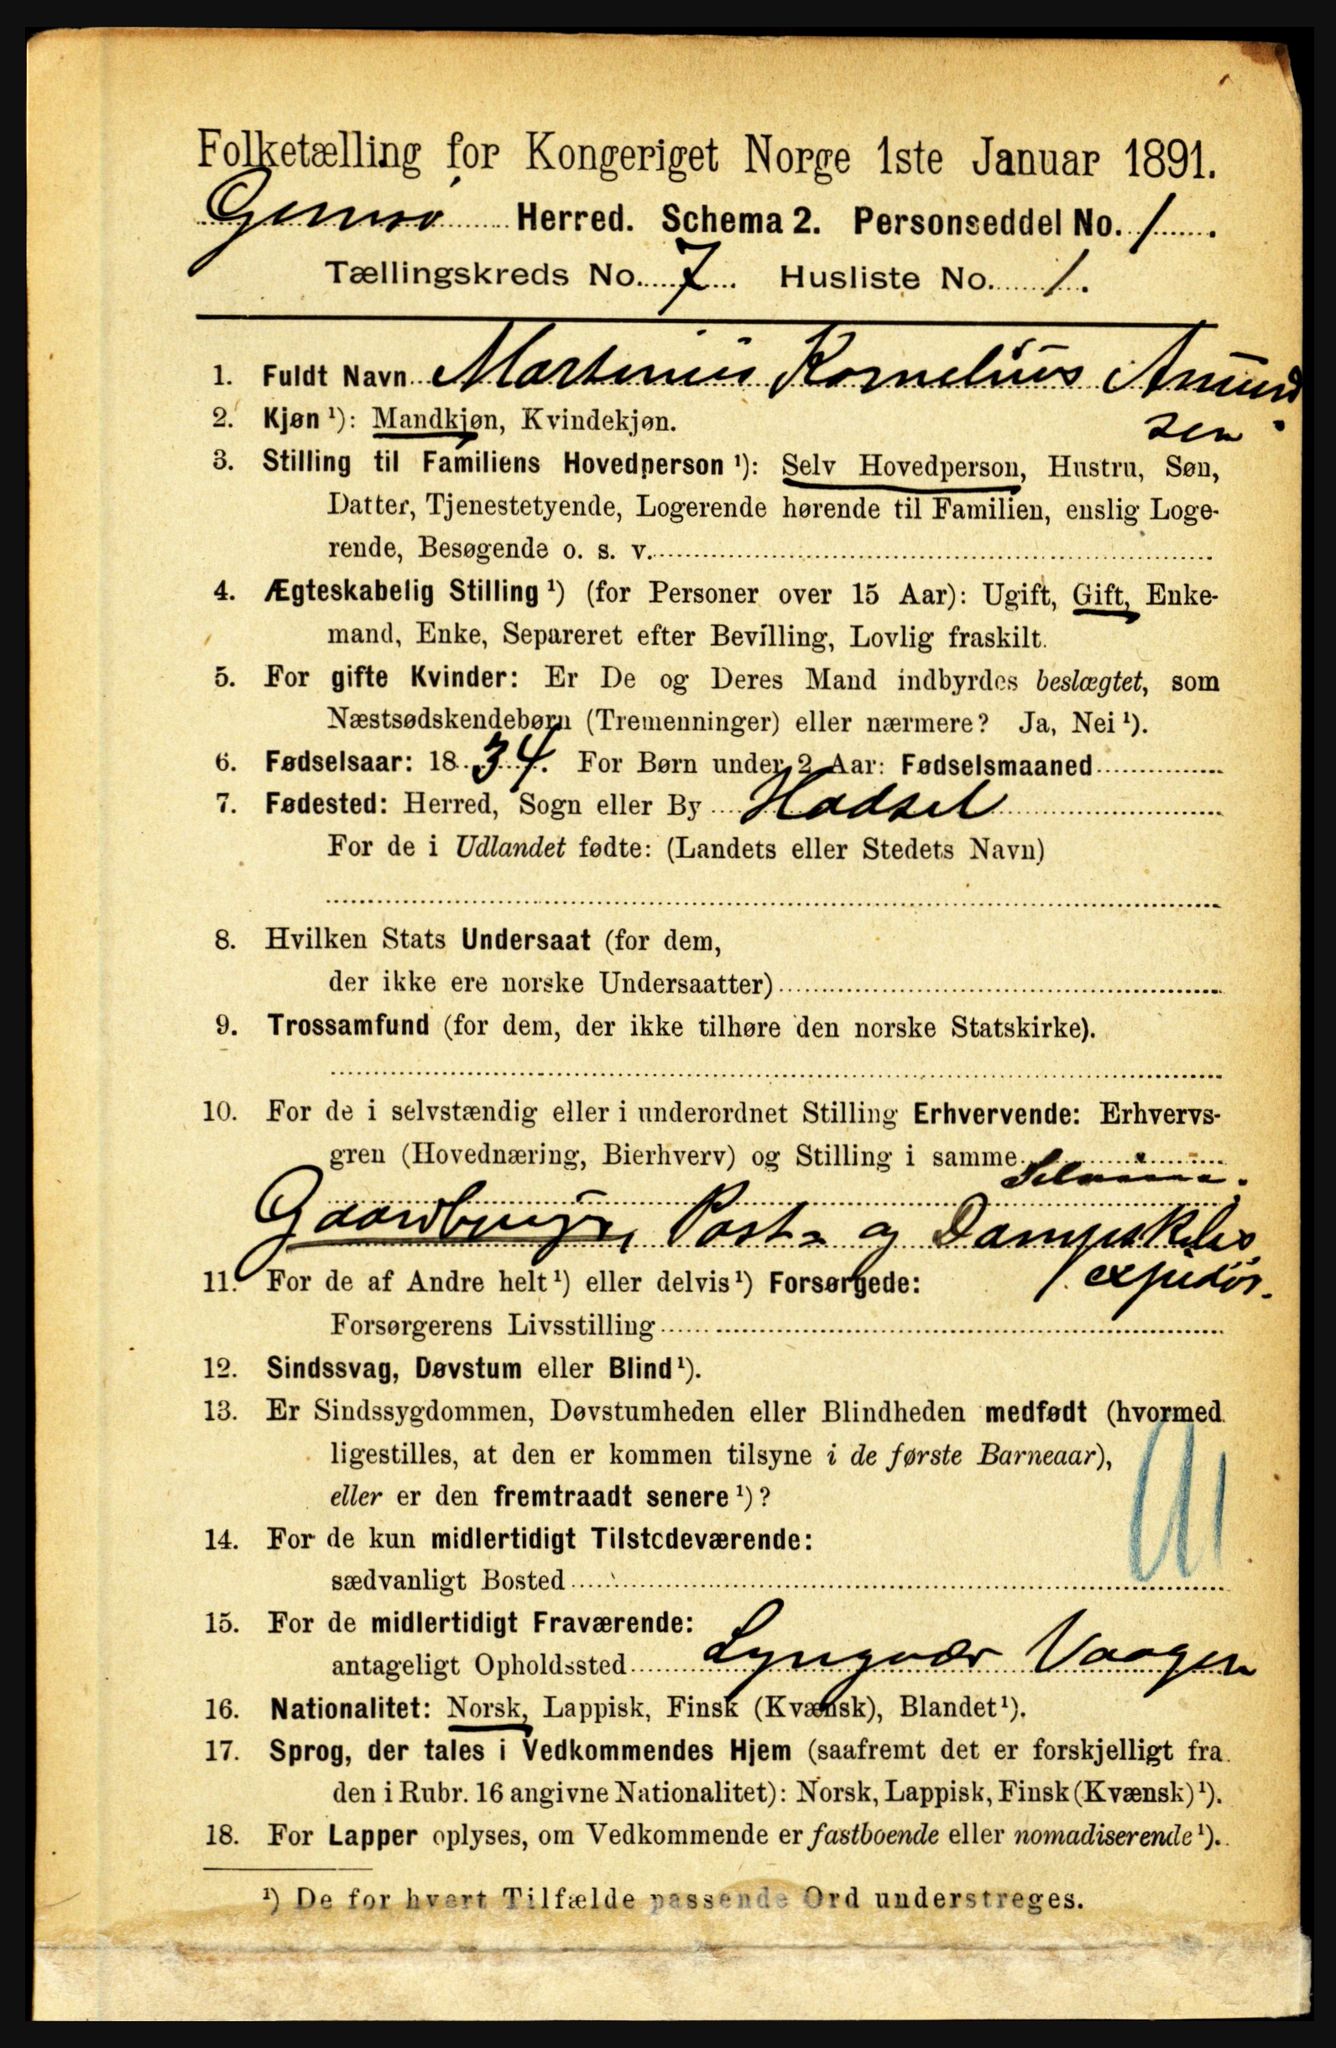 Folketælling for Kongeriget Norge 1ste Januar 1891.
Gimsø Herred. Schema 2. Personseddel No. 1.
Tællingskreds No. 7. Husliste No. 1.
1. Fuldt Navn Martinius Kornelius Amund
2. Kjøn ¹): Mandkjøn, Kvindekjøn. sen.
3. Stilling til Familiens Hovedperson ¹): Selv Hovedperson, Hustru, Søn,
Datter, Tjenestetyende, Logerende hørende til Familien, enslig Loge-
rende, Besøgende o. s. v.
4. Ægteskabelig Stilling ¹) (for Personer over 15 Aar): Ugift, Gift, Enke-
mand, Enke, Separeret efter Bevilling, Lovlig fraskilt.
5. For gifte Kvinder: Er De og Deres Mand indbyrdes beslægtet, som
Næstsødskendebørn (Tremenninger) eller nærmere? Ja, Nei ¹).
6. Fødselsaar: 1834. For Børn under 2 Aar: Fødselsmaaned
7. Fødested: Herred, Sogn eller By Hadsel
For de i Udlandet fødte: (Landets eller Stedets Navn)
8. Hvilken Stats Undersaat (for dem,
der ikke ere norske Undersaatter)
9. Trossamfund (for dem, der ikke tilhøre den norske Statskirke).
10. For de i selvstændig eller i underordnet Stilling Erhvervende: Erhvervs-
gren (Hovednæring, Bierhverv) og Stilling i samme
Gaardbruger, Post- og Dampskibs
11. For de af Andre helt ¹) eller delvis ¹) Forsørgede: expeditør.
Forsørgerens Livsstilling
12. Sindssvag, Døvstum eller Blind ¹).
13. Er Sindssygdommen, Døvstumheden eller Blindheden medfødt (hvormed
ligestilles, at den er kommen tilsyne i de første Barneaar),
eller er den fremtraadt senere ¹)?
14. For de kun midlertidigt Tilstedeværende:
sædvanligt Bosted
15. For de midlertidigt Fraværende:
antageligt Opholdssted Lyngvær Vaagen
16. Nationalitet: Norsk, Lappisk, Finsk (Kvænsk), Blandet ¹).
17. Sprog, der tales i Vedkommendes Hjem (saafremt det er forskjelligt fra
den i Rubr. 16 angivne Nationalitet): Norsk, Lappisk, Finsk (Kvænsk) ¹).
18. For Lapper oplyses, om Vedkommende er fastboende eller nomadiserende ¹).
¹) De for hvert Tilfælde passende Ord understreges.